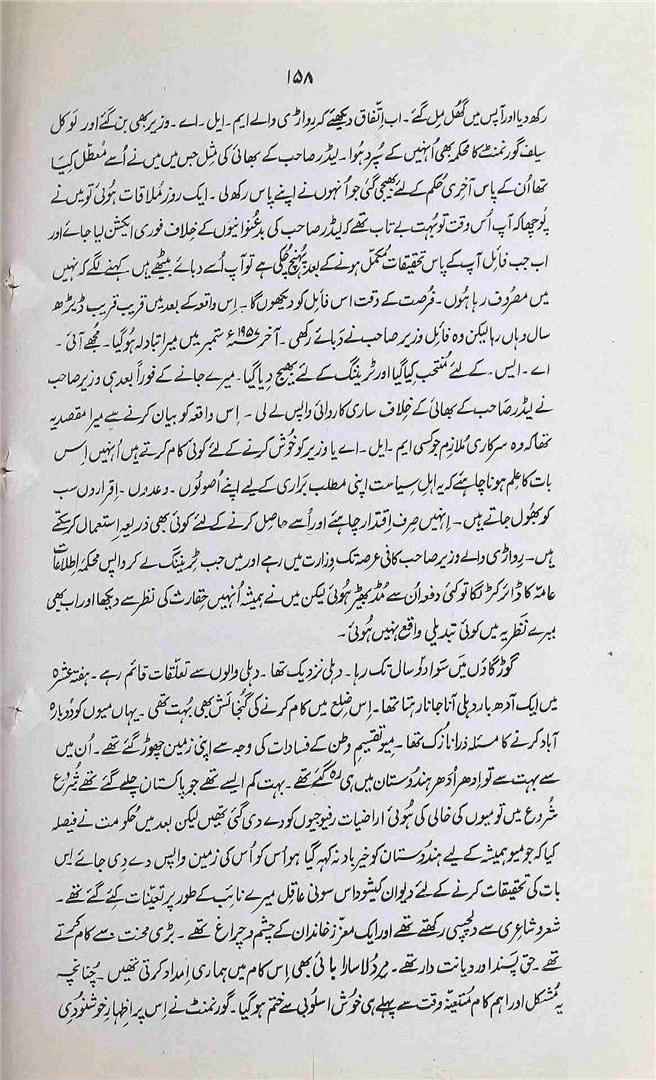 ۱۵۸
رکھ دیا اور آپس میں گھل مل گئے۔ اب اتّفاق دیکھئے کہ رواڑی والے ایم۔ ایل۔ اے۔ وزیر بھی بن گئے اور لوکل
سیلف گورنمنٹ کا محکمہ بھی اُنہیں کے سپرد ہوا۔ لیڈر صاحب کے بھائی کی مِثل جس میں میں نے اُسے معطّل کیا
تھا اُن کے پاس آخری حُکم کے لئے بھیجی گئی جو اُنہوں نے اپنے پاس رکھ لی۔ ایک روز مُلاقات ہُوئی تو میں نے
پُوچھا کہ آپ اُس وقت تو بہت بے تاب تھے کہ لیڈر صاحب کی بدعُنوانیوں کے خلاف فوری ایکشن لیا جائے اور
اب جب فائل آپ کے پاس تحقیقات مکمّل ہونے کے بعد پہُنچ چکی ہے تو آپ اُسے دبائے بیٹھے ہیں۔ کہنے لگے کہ نہیں
میں مصرُوف رہا ہُوں۔ فرصت کے وقت اس فائل کو دیکھوں گا۔ اِس واقعہ کے بعد میں قریب قریب ڈیڑھ
سال وہاں رہا لیکن وہ فائل وزیر صاحب نے دَبائے رکھی۔ آخر ۱۹۵۷ء ستمبر میں میرا تبادلہ ہو گیا۔ مجھے آئی۔
اے۔ ایس۔ کے لئے مُنتخب کیا گیا اور ٹریننگ کے لئے بھیج دیا گیا۔ میرے جانے کے فوراً بعد ہی وزیر صاحب
نے لیڈر صاحب کے بھائی کے خلاف ساری کاروائی واپس لے لی۔ اِس واقعہ کو بیان کرنے سے میرا مقصد یہ
تھا کہ وہ سرکاری مُلازِم جو کسی ایم۔ ایل۔ اے یا وزیر کو خوش کرنے کے لئے کوئی کام کرتے ہیں اُنہیں اِس
بات کا عِلم ہونا چاہئے کہ یہ اہلِ سیاست اپنی مطلب بَراری کے لیے اپنے اُصولوں۔ وعدوں۔ اِقراروں سب
کو بھُول جاتے ہیں۔ اِنہیں صِرف اِقتدار چاہئے اور اُسے حاصل کرنے کے لئے کوئی بھی ذریعہ اِستعمال کر سکتے
ہیں۔ رِواڑی والے وزیر صاحب کافی عرصہ تک وِزارت میں رہے اور میں جب ٹریننگ لے کر واپس محکمۂ اِطلاعات
عامّہ کا ڈائرکٹر لگا تو کئی دفعہ اُن سے مُڈ بھیڑ ہُوئی لیکن میں نے ہمیشہ اُنہیں حِقارت کی نظر سے دیکھا اور اب بھی
میرے نَظرِیہ میں کوئی تبدیلی واقع نہیں ہُوئی۔
گوڑگاؤں میں سَوا دو سال تک رہا۔ دہلی نزدیک تھا۔ دہلی والوں سے تعلّقات قائم رہے۔ ہفتہ عشرہ
میں ایک آدھ بار دہلی آنا جانا رہتا تھا۔ اِس ضلع میں کام کرنے کی گُنجائش بھی بہُت تھی۔ یہاں میوں کو دوبارہ
آباد کرنے کا مسئلہ ذرا نازُک تھا۔ میو تقسیمِ وطن کے فسادات کی وجہ سے اپنی زمین چھوڑ گئے تھے۔ اُن میں
سے بہت سے تو اِدھر اُدھر ہندوستان میں ہی رہ گئے تھے۔ بہت کم ایسے تھے جو پاکستان چلے گئے تھے شُرُوع
شُرُوع میں تو میوں کی خالی کی ہُوئی اراضیات رفیوجیوں کو دے دی گئی تھیں لیکن بعد میں حُکومت نے فیصلہ
کیا کہ جو میو ہمیشہ کے لیے ہندوستان کو خیرباد نہ کہہ گیا ہو اُس کو اُس کی زمین واپس دے دی جائے اِس
بات کی تحقیقات کرنے کے لئے دیوان کیشوداس سونی عاقِل میرے نائب کے طور پر تعینات کئے گئے تھے۔
شعر و شاعری سے دلچسپی رکھتے تھے اور ایک معزّز خاندان کے چشم و چراغ تھے۔ بڑی محنت سے کام کرتے
تھے۔ حق پَسند اور دیانت دار تھے۔ مِردُلا سارا بائی بھی اِس کام میں ہماری اِمداد کرتی تھیں۔ چُنانچہ
یہ مُشکل اور اہم کام مُتعیّنہ وقت سے پہلے ہی خُوش اسلُوبی سے ختم ہو گیا۔ گورنمنٹ نے اِس پر اِظہارِ خوشنُودی